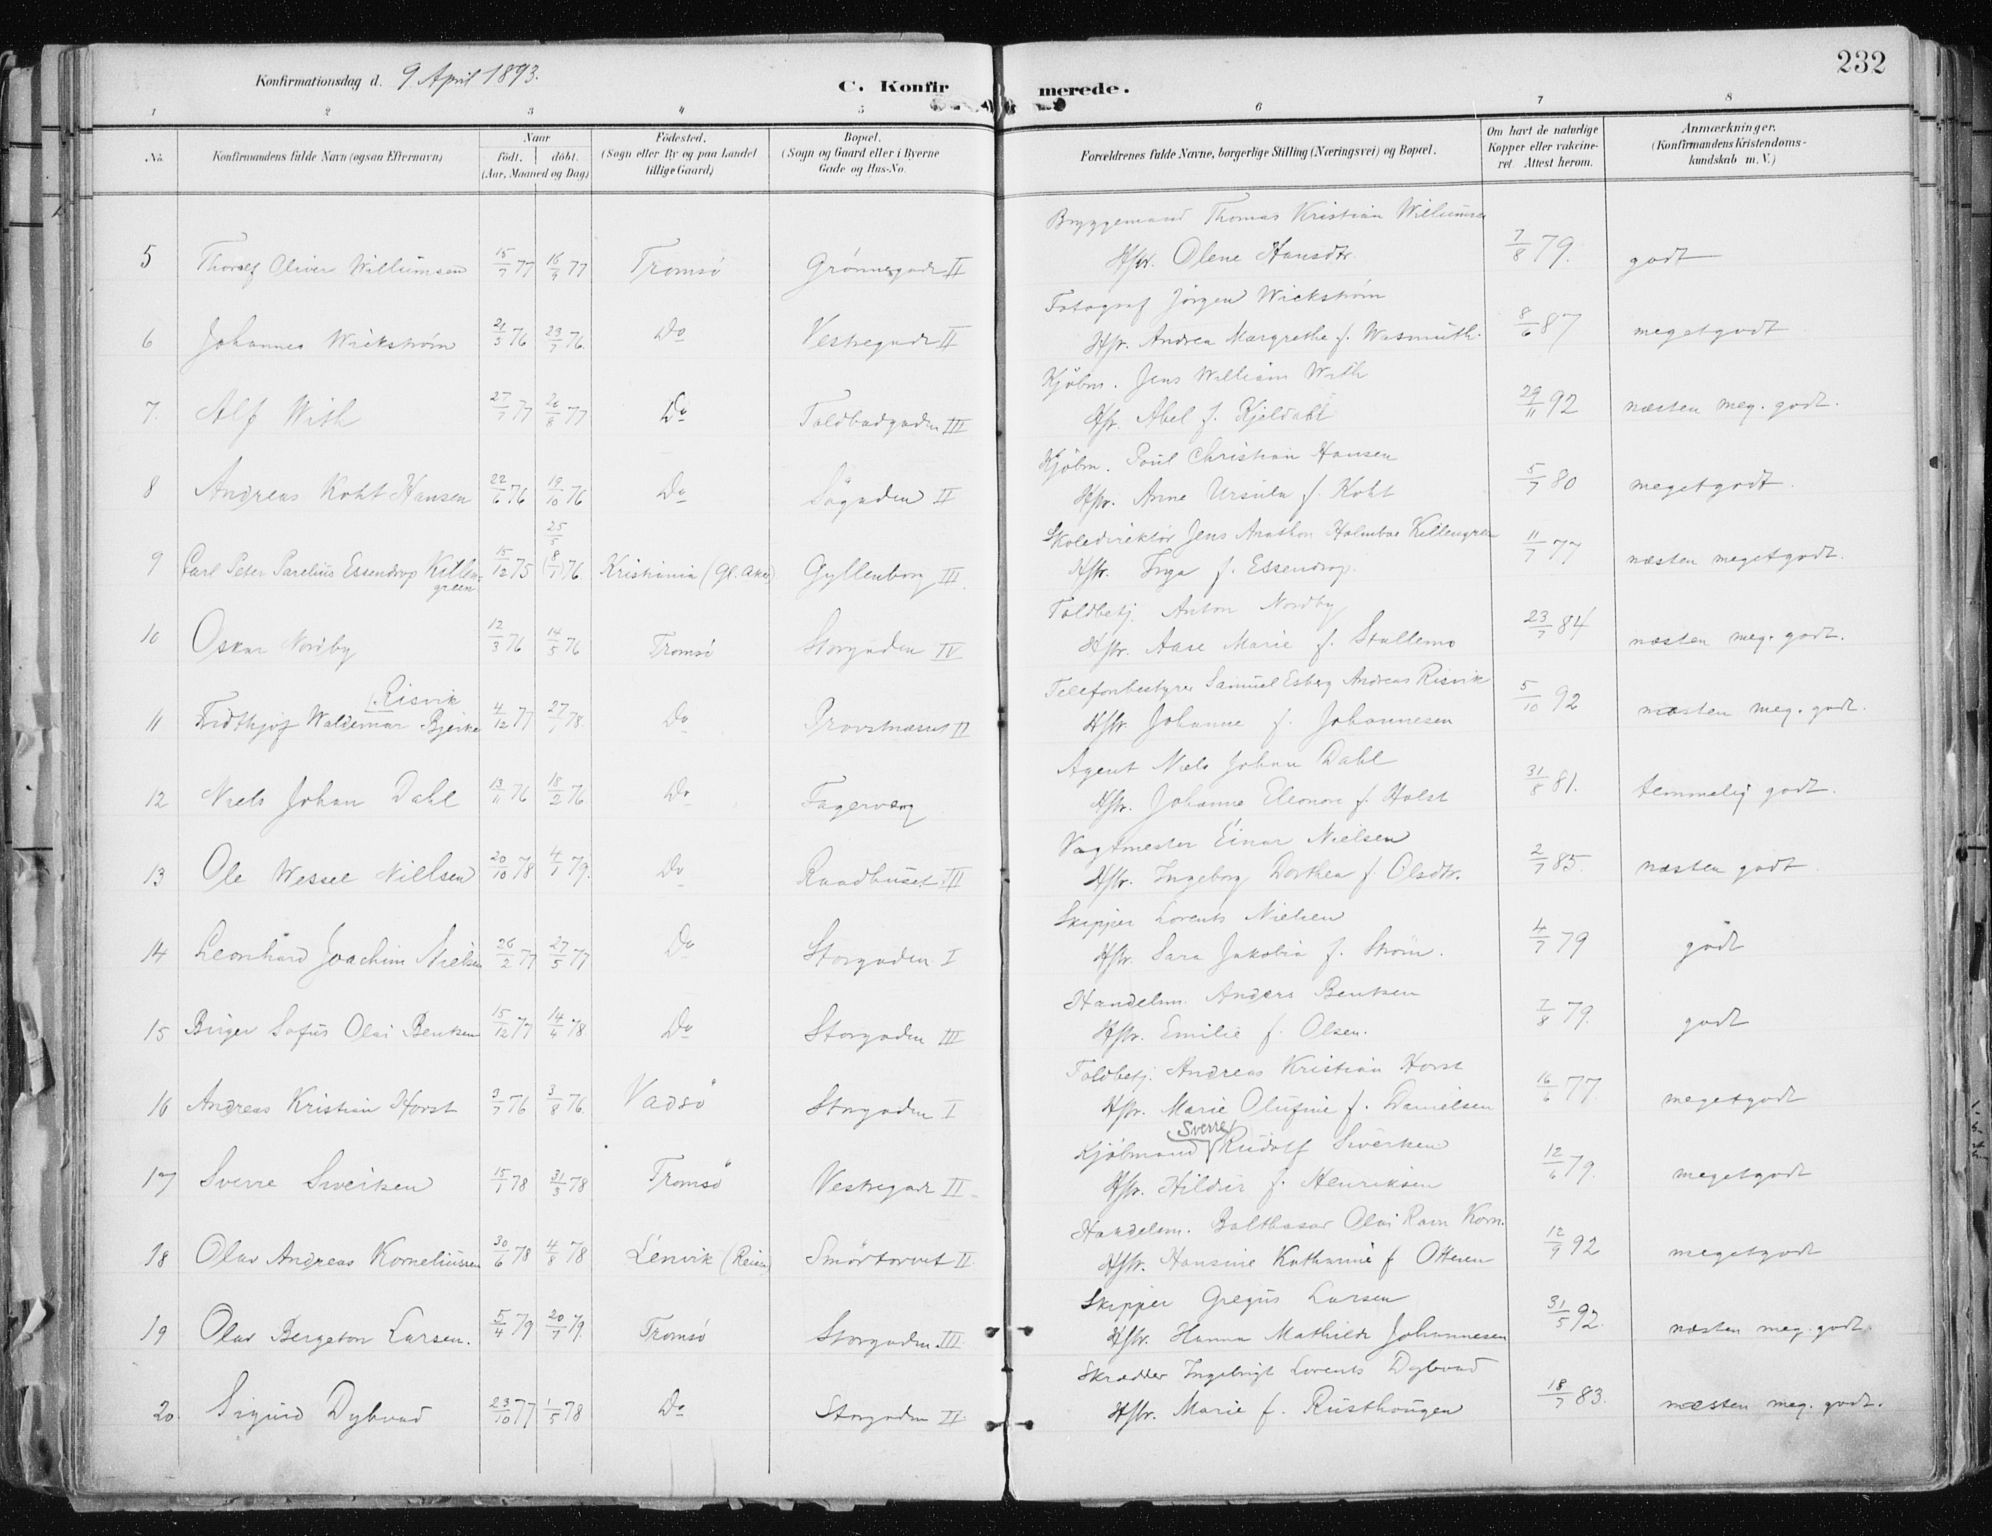 Konfirmationsdag d. 9 April 1893.
C. Konfirmerede.
232
1 2 3 4 5 6 7 8
No. Konfirmandens fulde Navn (ogsaa Efternavn) Naar født. døbt. (Aar, Maaned og Dag) Födested. (Sogn eller By og paa Landet tillige Gaard) Bopæl. (Sogn og Gaard eller i Byerne Gade og Hus-No. Forældrenes fulde Navne, borgerlige Stilling (Næringsvei) og Bopæl. Om havt de naturlige Kopper eller vakcineret. Attest herom. Anmærkninger. (Konfirmandens Kristendomskundskab m. V.)
Bryggemand Thomas Kristian Willumsen
5 Thoralf Oliver Willumsen 15/7 77 16/9 77 Tromsö Grönnegade II Hstr. Olene Hansdtr. 7/8 79. godt
Fotograf Jörgen Wickström
6 Johannes Wickström 21/3 76 23/7 76. Do Vestregade II Hstr. Andrea Margrethe f. Wasmuth. 8/6 87 megetgodt
Kjöbm. Jens William With
7. Alf With 27/7 77 26/8 77 Do Toldbodgaden III Hstr. Abel f. Kjeldahl 29/11 92 næsten meg. godt.
Kjöbm. Poul Christian Hansen
8 Andreas Koht Hansen 22/6 76 19/10 76 Do Sögaden II Hstr. Anne Ursula f. Koht 5/7 80 megetgodt.
25/5
Skoledirektör Jens Anathon Holmboe Killengreen
9 Carl Peter Parelius Essendrop Killengreen 15/12 75 (8/7) 76 Kristiania (Gl. Aker) Gyllenborg III Hstr. Inga f. Essendrop. 11/7 77 næsten megetgodt.
Toldbetj. Anton Nordby
10 Oskar Nordby 12/3 76 14/5 76 Tromsö Storgaden IV Hstr. Aase Marie f. Stallemo 23/7 84 næsten meg. godt.
Risvik
Telefonbestyrer Samuel Esberg Andreas Risvik
11 Fridthjof Waldemar Bjerke 4/12 77 27/7 78. Do Provstnæsset II Hstr. Johanne f. Johannesen 5/10 92 næsten meg. godt.
Agent Niels Johan Dahl
12 Niels Johan Dahl 13/11 76 18/2 76 Do Fagerveng Hstr. Johanna Eleonore f. Holst 31/8 81. temmelig godt.
Vagtmester Einar Nielsen
13 Ole Wessel Nillsen 20/10 78 4/7 79. Do Raadhuset III Hstr. Ingeborg Dorthea f. Olsdtr. 2/7 85. næsten godt
Skipper Lorents Nielsen
14 Leonhard Joachim Nielsen 26/2 77 27/5 77 Do Storgaden I Hstr. Sara Jakobia f. Ström. 4/7 79 godt
Handelsm. Anders Bentsen
15 Birger Sofus Olai Bentsen 15/12 77 14/4 78 Do Storgaden III Hstr. Emilie f. Olsen. 7/8 79. godt
Toldbetj. Andreas Kristian Horst
16 Andreas Kristian Horst 3/7 76 3/8 76. Vadsö Storgaden I Hstr. Marie Olufine f. Danielsen 16/6 77. megetgodt
Sverre
Kjöbmand Rudolf SiverTsen
17 Sverre Sivertsen 15/1 78 31/3 78 Tromsö Vestregade II Hstr. Hildur f. Henriksen 12/6 79. megetgodt
Handelsm. Balthasar Olai Ravn Korn.
18 Olav Andreas Korneliussen 30/6 78 4/8 78 Lenvik (Reisen) Smörtorvet II Hstr. Hansine Katharine f Ottesen 12/9 92 megetgodt
Skipper Gregus Larsen
19 Olav Bergeton Larsen. 5/4 79 20/7 79. Tromsö Storgaden III Hstr. Hanna Mathilde Johannesen 31/5 92. næsten meg. godt.
Skrædder Ingebrigt Lorents Dybvad
20. Sigurd Dybvad 23/10 77 1/5 78 Do Storgaden II Hstr. Marie f. Rusthougen 18/7 83. næsten meg. godt.